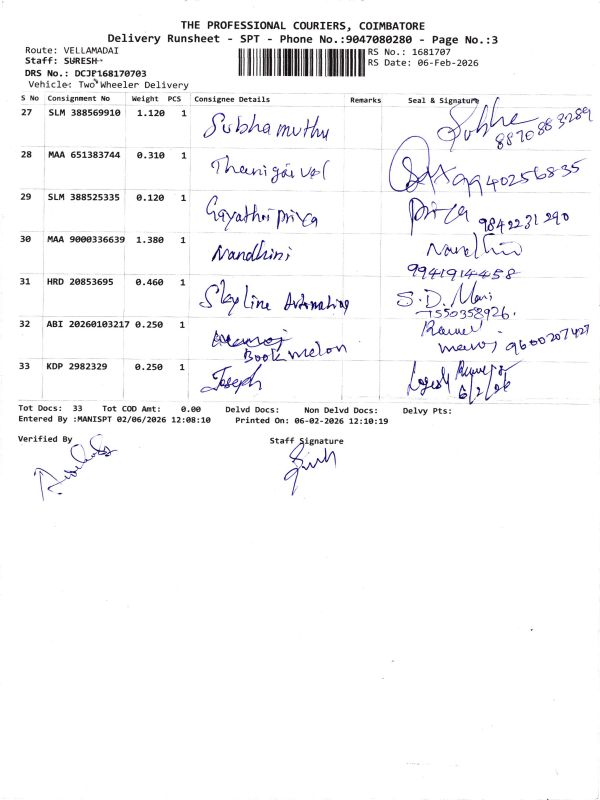 THE PROFESSIONAL COURIERS, COIMBATORE
Delivery Runsheet - SPT - Phone No.:9047080280 - Page No.:3
Route: VELLAMADAI
RS No.: 1681707
Staff: SURESH
RS Date: 06-Feb-2026
DRS No.: DCJP168170703
Vehicle: Two Wheeler Delivery
S No Consignment No Weight PCS Consignee Details Remarks Seal & Signature
27 SLM 388569910 1.120 1 Subhamuthu Subha
8870883289
28 MAA 651383744 0.310 1 Thanigaivel 9940256835
29 SLM 388525335 0.120 1 Gayathri priya priya 9842231290
30 MAA 9000336639 1.380 1 Nandhini Nandhini
9941914458
31 HRD 20853695 0.460 1 Skyline Automation S.D. Mani
7550358926.
32 ABI 20260103217 0.250 1 Book melon
manoj 9600207427
33 KDP 2982329 0.250 1 Joseph
6/2/26
Tot Docs: 33 Tot COD Amt: 0.00 Delvd Docs: Non Delvd Docs: Delvy Pts:
Entered By :MANISPT 02/06/2026 12:08:10 Printed On: 06-02-2026 12:10:19
Verified By Staff Signature